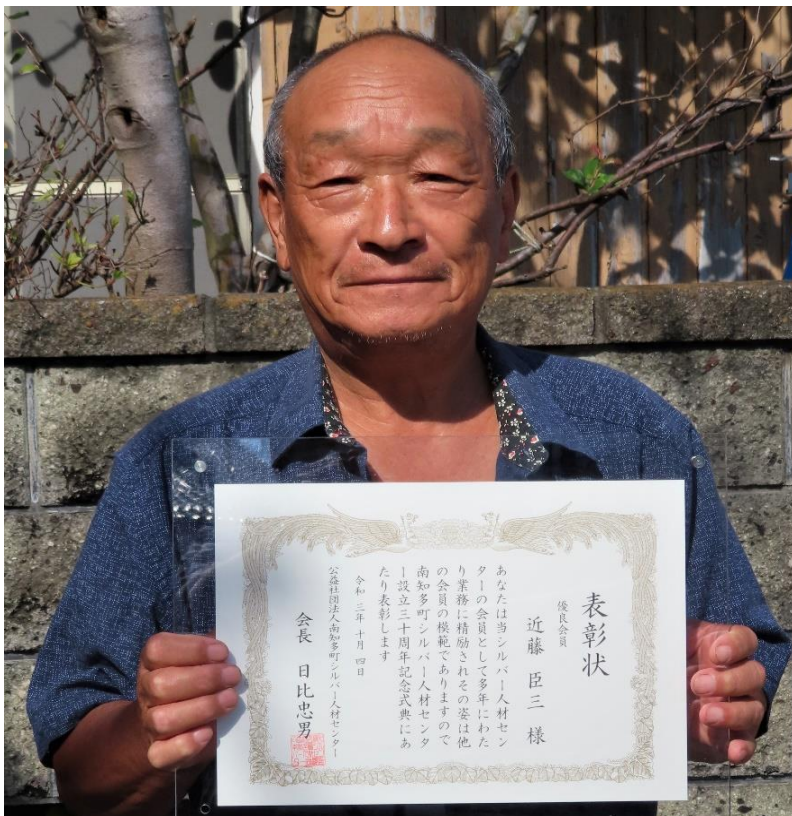 表彰状
優良会員
近藤臣三様
あなたは当シルバー人材セン
ターの会員として多年にわた
り業務に精励されその姿は他
の会員の模範でありますので
南知多町シルバー人材センタ
ー設立三十周年記念式典にあ
たり表彰します
令和三年十月四日
公益社団法人南知多町シルバー人材センター
会長 日比忠男